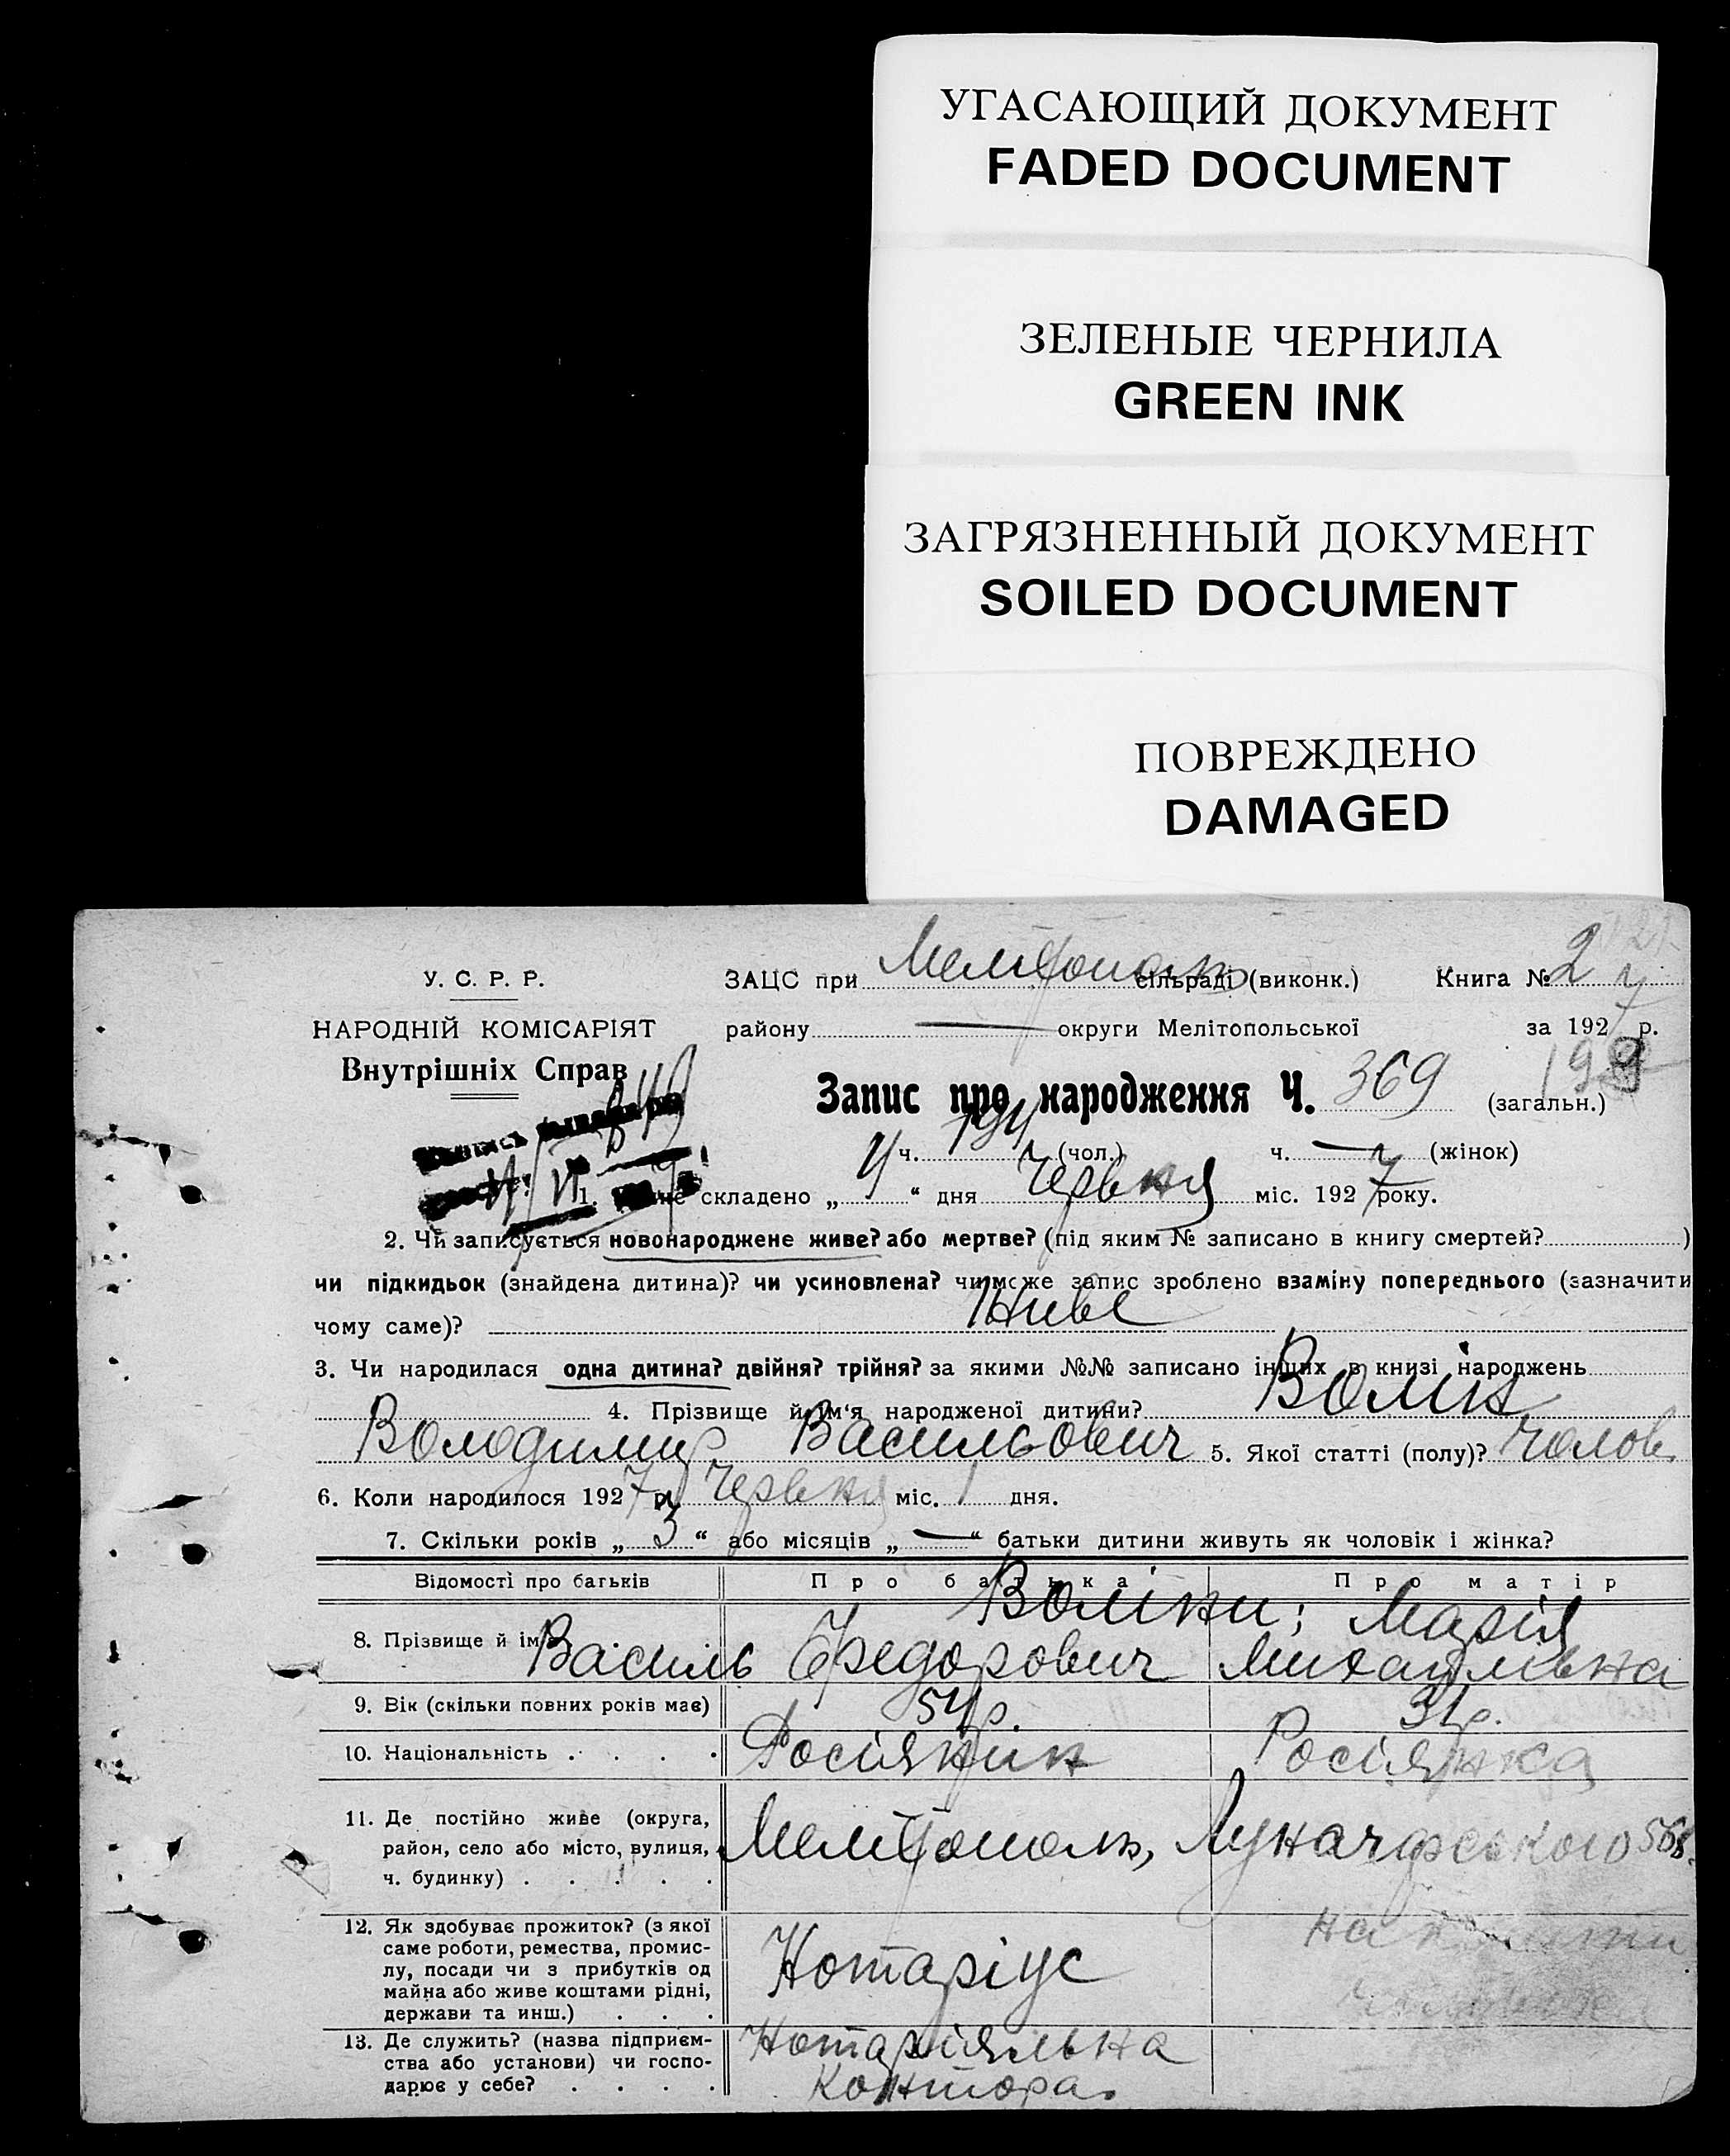 УГАСАЮЩИЙ ДОКУМЕНТ
FADED DOCUMENT
ЗЕЛЕНЫЕ ЧЕРНИЛА
GREEN INK
ЗАГРЯЗНЕННЫЙ ДОКУМЕНТ
SOILED DOCUMENT
ПОВРЕЖДЕНО
DAMAGED
У. С. Р. Р.
НАРОДНІЙ КОМІСАРІЯТ
Внутрішніх Справ
ЗАЦС при Мелітопольськ сільраді (виконк.) Книга № 2
району — округи Мелітопольської за 1927 р.
Запис про народження Ч. 369 (загальн.) 199
ч. 194 (чол.) ч. — (жінок)
1. складено „ 4 “ дня Червня міс. 1927 року.
2. Чи записується новонароджене живе? або мертве? (під яким № записано в книгу смертей? )
чи підкидьок (знайдена дитина)? чи усиновлена? чи може запис зроблено взаміну попереднього (зазначити
чому саме)? Живе
3. Чи народилася одна дитина? двійня? трійня? за якими №№ записано інших в книзі народжень
4. Прізвище й ім'я народженої дитини? Волін
Володимир Васильович 5. Якої статті (полу)? Чолов.
6. Коли народилося 1927 р. Червня міс. 1 дня.
7. Скільки років „ 3 “ або місяців „ — “ батьки дитини живуть як чоловік і жінка?
Відомості про батьків Про батька Про матір
Воліни; Марія
8. Прізвище й ім'я Василь Федорович Михайлівна
9. Вік (скільки повних років має) 54 р. 31 р.
10. Національність . . . . Росіянин Росіянка
11. Де постійно живе (округа,
район, село або місто, вулиця,
ч. будинку) . . . . .
Мелітополь, Луначарського 568.
12. Як здобуває прожиток? (з якої
саме роботи, ремества, промис-
лу, посади чи з прибутків од
майна або живе коштами рідні,
держави та инш.) . . .
Нотаріус
на
13. Де служить? (назва підприєм-
ства або установи) чи госпо-
дарює у себе? . . . .
Нотаріяльна
Контора.